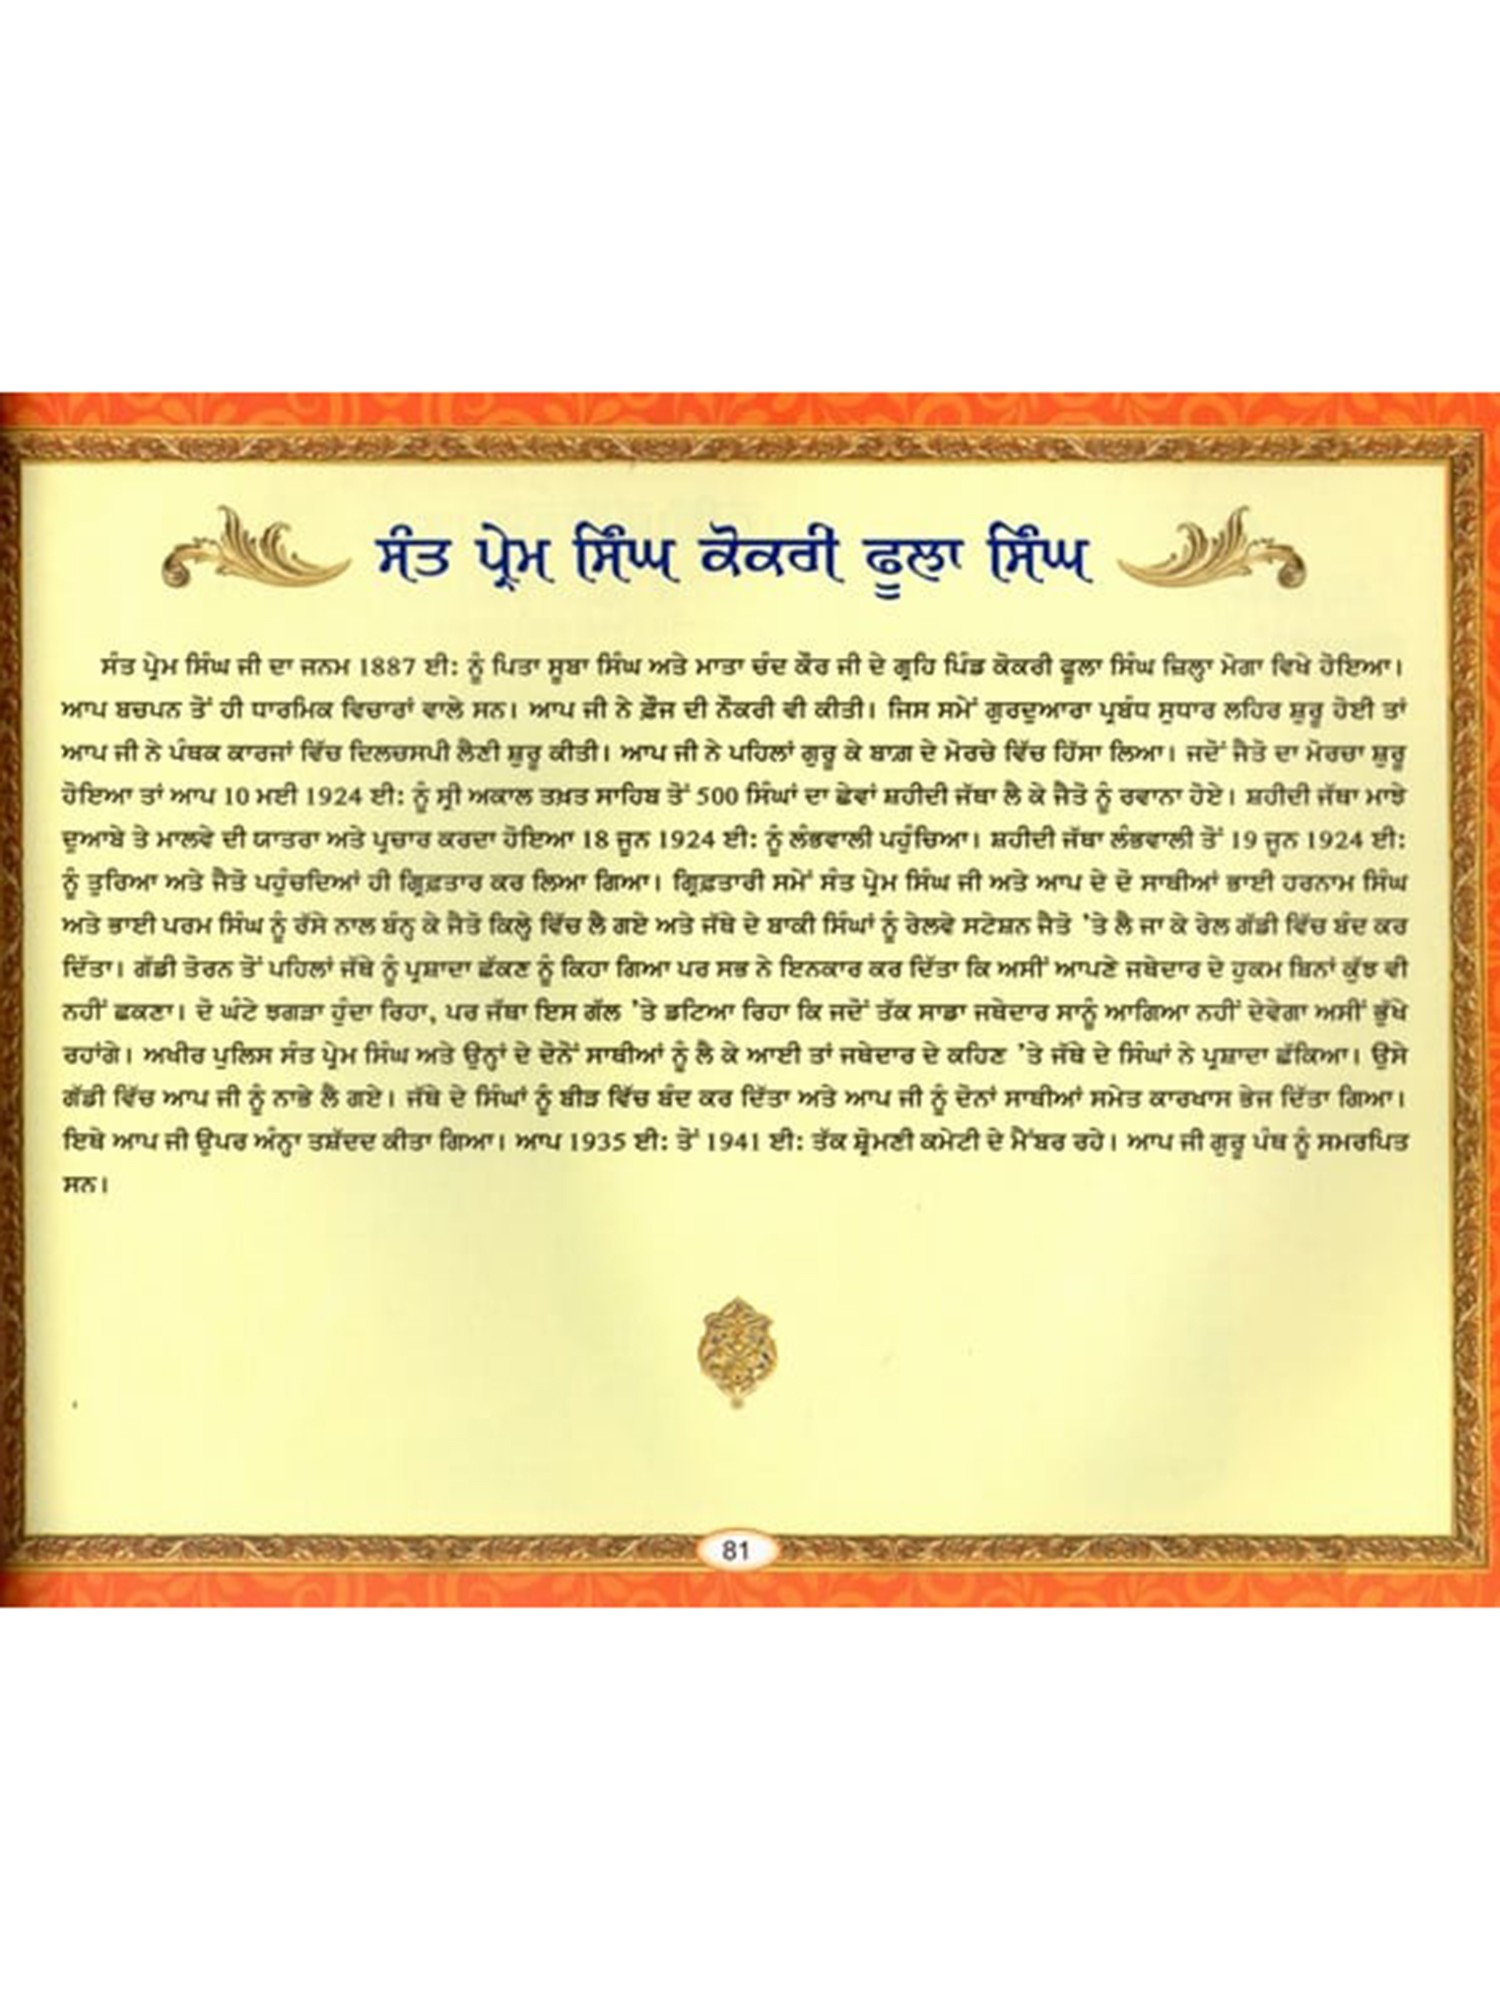 ਸੰਤ ਪ੍ਰੇਮ ਸਿੰਘ ਕੋਕਰੀ ਫੂਲਾ ਸਿੰਘ
ਸੰਤ ਪ੍ਰੇਮ ਸਿੰਘ ਜੀ ਦਾ ਜਨਮ 1887 ਈ: ਨੂੰ ਪਿਤਾ ਸੂਬਾ ਸਿੰਘ ਅਤੇ ਮਾਤਾ ਚੰਦ ਕੌਰ ਜੀ ਦੇ ਗ੍ਰਹਿ ਪਿੰਡ ਕੋਕਰੀ ਫੂਲਾ ਸਿੰਘ ਜ਼ਿਲ੍ਹਾ ਮੋਗਾ ਵਿਖੇ ਹੋਇਆ।
ਆਪ ਬਚਪਨ ਤੋਂ ਹੀ ਧਾਰਮਿਕ ਵਿਚਾਰਾਂ ਵਾਲੇ ਸਨ। ਆਪ ਜੀ ਨੇ ਫ਼ੌਜ ਦੀ ਨੌਕਰੀ ਵੀ ਕੀਤੀ। ਜਿਸ ਸਮੇਂ ਗੁਰਦੁਆਰਾ ਪ੍ਰਬੰਧ ਸੁਧਾਰ ਲਹਿਰ ਸ਼ੁਰੂ ਹੋਈ ਤਾਂ
ਆਪ ਜੀ ਨੇ ਪੰਥਕ ਕਾਰਜਾਂ ਵਿੱਚ ਦਿਲਚਸਪੀ ਲੈਣੀ ਸ਼ੁਰੂ ਕੀਤੀ। ਆਪ ਜੀ ਨੇ ਪਹਿਲਾਂ ਗੁਰੂ ਕੇ ਬਾਗ਼ ਦੇ ਮੋਰਚੇ ਵਿੱਚ ਹਿੱਸਾ ਲਿਆ। ਜਦੋਂ ਜੈਤੋ ਦਾ ਮੋਰਚਾ ਸ਼ੁਰੂ
ਹੋਇਆ ਤਾਂ ਆਪ 10 ਮਈ 1924 ਈ: ਨੂੰ ਸ੍ਰੀ ਅਕਾਲ ਤਖ਼ਤ ਸਾਹਿਬ ਤੋਂ 500 ਸਿੰਘਾਂ ਦਾ ਛੇਵਾਂ ਸ਼ਹੀਦੀ ਜੱਥਾ ਲੈ ਕੇ ਜੈਤੋ ਨੂੰ ਰਵਾਨਾ ਹੋਏ। ਸ਼ਹੀਦੀ ਜੱਥਾ ਮਾਝੇ
ਦੁਆਬੇ ਤੇ ਮਾਲਵੇ ਦੀ ਯਾਤਰਾ ਅਤੇ ਪ੍ਰਚਾਰ ਕਰਦਾ ਹੋਇਆ 18 ਜੂਨ 1924 ਈ: ਨੂੰ ਲੰਭਵਾਲੀ ਪਹੁੰਚਿਆ। ਸ਼ਹੀਦੀ ਜੱਥਾ ਲੰਭਵਾਲੀ ਤੋਂ 19 ਜੂਨ 1924 ਈ:
ਨੂੰ ਤੁਰਿਆ ਅਤੇ ਜੈਤੋ ਪਹੁੰਚਦਿਆਂ ਹੀ ਗ੍ਰਿਫ਼ਤਾਰ ਕਰ ਲਿਆ ਗਿਆ। ਗ੍ਰਿਫ਼ਤਾਰੀ ਸਮੇਂ ਸੰਤ ਪ੍ਰੇਮ ਸਿੰਘ ਜੀ ਅਤੇ ਆਪ ਦੇ ਦੋ ਸਾਥੀਆਂ ਭਾਈ ਹਰਨਾਮ ਸਿੰਘ
ਅਤੇ ਭਾਈ ਪਰਮ ਸਿੰਘ ਨੂੰ ਰੱਸੇ ਨਾਲ ਬੰਨ੍ਹ ਕੇ ਜੈਤੋ ਕਿਲ੍ਹੇ ਵਿੱਚ ਲੈ ਗਏ ਅਤੇ ਜੱਥੇ ਦੇ ਬਾਕੀ ਸਿੰਘਾਂ ਨੂੰ ਰੇਲਵੇ ਸਟੇਸ਼ਨ ਜੈਤੋ ’ਤੇ ਲੈ ਜਾ ਕੇ ਰੇਲ ਗੱਡੀ ਵਿੱਚ ਬੰਦ ਕਰ
ਦਿੱਤਾ। ਗੱਡੀ ਤੋਰਨ ਤੋਂ ਪਹਿਲਾਂ ਜੱਥੇ ਨੂੰ ਪ੍ਰਸ਼ਾਦਾ ਛੱਕਣ ਨੂੰ ਕਿਹਾ ਗਿਆ ਪਰ ਸਭ ਨੇ ਇਨਕਾਰ ਕਰ ਦਿੱਤਾ ਕਿ ਅਸੀਂ ਆਪਣੇ ਜਥੇਦਾਰ ਦੇ ਹੁਕਮ ਬਿਨਾਂ ਕੁੱਝ ਵੀ
ਨਹੀਂ ਛਕਣਾ। ਦੋ ਘੰਟੇ ਝਗੜਾ ਹੁੰਦਾ ਰਿਹਾ, ਪਰ ਜੱਥਾ ਇਸ ਗੱਲ ’ਤੇ ਡਟਿਆ ਰਿਹਾ ਕਿ ਜਦੋਂ ਤੱਕ ਸਾਡਾ ਜਥੇਦਾਰ ਸਾਨੂੰ ਆਗਿਆ ਨਹੀਂ ਦੇਵੇਗਾ ਅਸੀਂ ਭੁੱਖੇ
ਰਹਾਂਗੇ। ਅਖੀਰ ਪੁਲਿਸ ਸੰਤ ਪ੍ਰੇਮ ਸਿੰਘ ਅਤੇ ਉਨ੍ਹਾਂ ਦੇ ਦੋਨੋਂ ਸਾਥੀਆਂ ਨੂੰ ਲੈ ਕੇ ਆਈ ਤਾਂ ਜਥੇਦਾਰ ਦੇ ਕਹਿਣ ’ਤੇ ਜੱਥੇ ਦੇ ਸਿੰਘਾਂ ਨੇ ਪ੍ਰਸ਼ਾਦਾ ਛੱਕਿਆ। ਉਸੇ
ਗੱਡੀ ਵਿੱਚ ਆਪ ਜੀ ਨੂੰ ਨਾਭੇ ਲੈ ਗਏ। ਜੱਥੇ ਦੇ ਸਿੰਘਾਂ ਨੂੰ ਬੀੜ ਵਿੱਚ ਬੰਦ ਕਰ ਦਿੱਤਾ ਅਤੇ ਆਪ ਜੀ ਨੂੰ ਦੋਨਾਂ ਸਾਥੀਆਂ ਸਮੇਤ ਕਾਰਖਾਸ ਭੇਜ ਦਿੱਤਾ ਗਿਆ।
ਇਥੇ ਆਪ ਜੀ ਉਪਰ ਅੰਨ੍ਹਾ ਤਸ਼ੱਦਦ ਕੀਤਾ ਗਿਆ। ਆਪ 1935 ਈ: ਤੋਂ 1941 ਈ: ਤੱਕ ਸ਼੍ਰੋਮਣੀ ਕਮੇਟੀ ਦੇ ਮੈਂਬਰ ਰਹੇ। ਆਪ ਜੀ ਗੁਰੂ ਪੰਥ ਨੂੰ ਸਮਰਪਿਤ
ਸਨ।
81